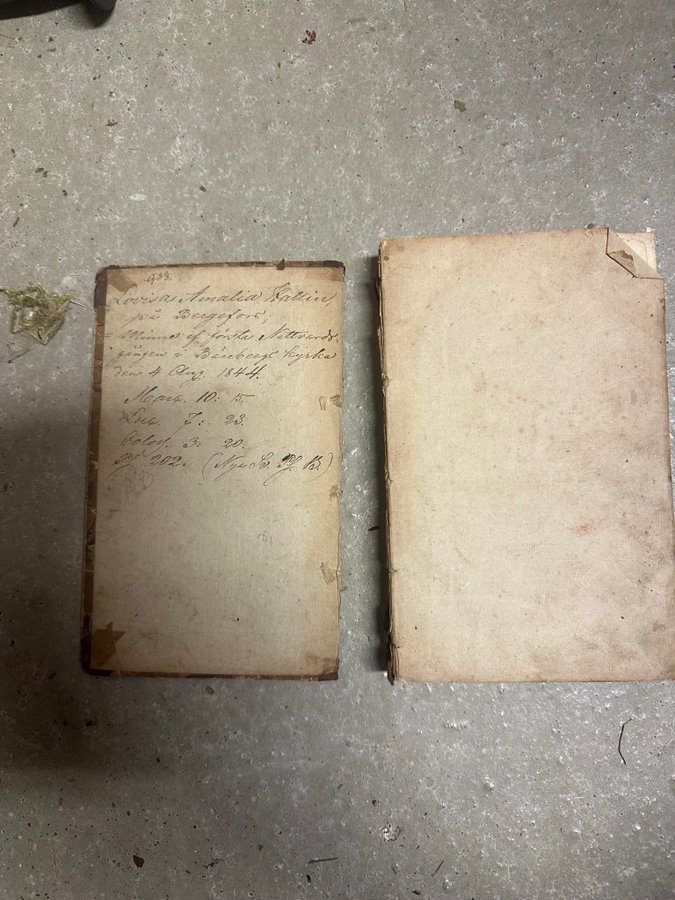 Lovisa Amalia Wallin,
på Bergefors;
Minne af första Nattvards-
gången i Bäreberg's kyrka
den 4 Aug. 1844.
Marc. 10: 15.
Luc. 7: 23.
Coloss. 3: 20.
Ps. 202. (Nya Sv. Ps. B.)